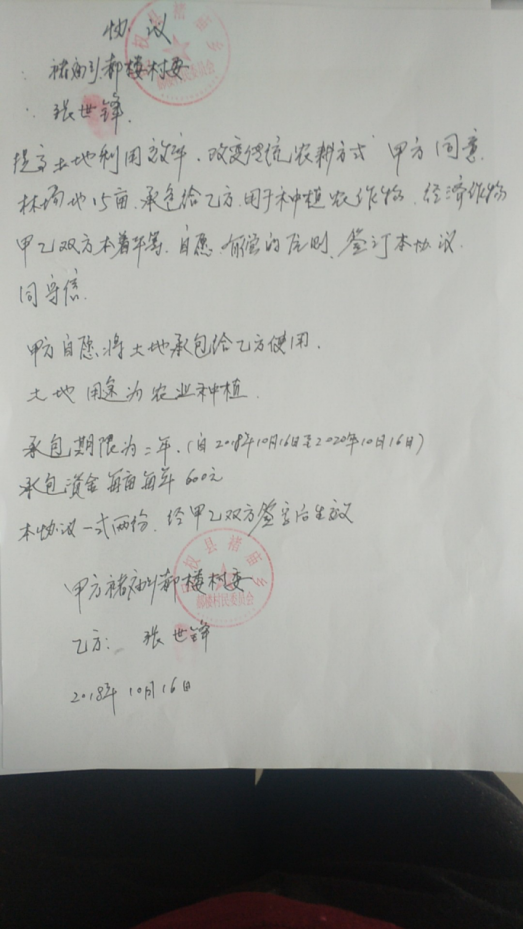 协议
褚庙乡郝楼村委
张世锋
提高土地利用效率、改变传统农耕方式 甲方同意
林场地15亩、承包给乙方、用于种植农作物、经济作物
甲乙双方本着平等、自愿、有偿的原则、签订本协议、
同守信.
甲方自愿将土地承包给乙方使用.
土地用途为农业种植.
承包期限为二年.(自2018年10月16日至2020年10月16日)
承包资金每亩每年600元
本协议一式两份、经甲乙双方签字后生效
权县褚庙乡
郝楼村民委员会
甲方褚庙乡郝楼村委
乙方: 张世锋
2018年10月16日